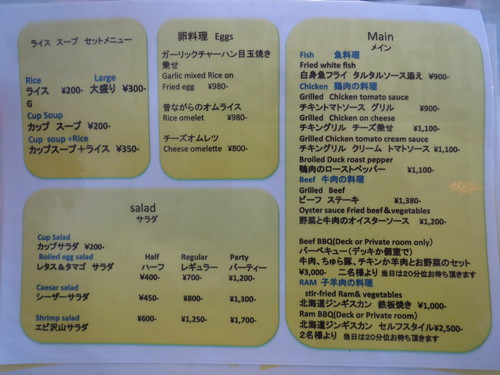 ライス スープ セットメニュー
Rice Large
ライス ¥200- 大盛り ¥300-
G
Cup Soup
カップ スープ ¥200-
Cup soup +Rice
カップスープ＋ライス ¥350-
卵料理 Eggs
ガーリックチャーハン目玉焼き
乗せ
Garlic mixed Rice on
Fried egg ¥980-
昔ながらのオムライス
Rice omelet ¥980-
チーズオムレツ
Cheese omelette ¥800-
salad
サラダ
Cup Salad
カップサラダ ¥200-
Boiled egg salad Half Regular Party
レタス＆タマゴ サラダ ハーフ レギュラー パーティー
¥400- ¥700- ¥1,200-
Caesar salad
シーザーサラダ ¥450- ¥800- ¥1,300-
Shrimp salad
エビ沢山サラダ ¥600- ¥1,250- ¥1,700-
Main
メイン
Fish 魚料理
Fried white fish
白身魚フライ タルタルソース添え ¥900-
Chicken 鶏肉の料理
Grilled Chicken tomato sauce
チキントマトソース グリル ¥900-
Grilled Chicken on cheese
チキングリル チーズ乗せ ¥1,100-
Grilled Chicken tomato cream sauce
チキングリル クリーム トマトソース ¥1,100-
Broiled Duck roast pepper
鴨肉のローストペッパー ¥1,100-
Beef 牛肉の料理
Grilled Beef
ビーフ ステーキ ¥1,380-
Oyster sauce Fried beef＆vegetables
野菜と牛肉のオイスターソース ¥1,200-
Beef BBQ(Deck or Private room only）
バーベキュー（デッキか個室で）
牛肉、ちゅら豚、チキンか羊肉とお野菜のセット
¥3,000- 二名様より 当日は20分位お待ち頂きます
RAM 子羊肉の料理
stir-fried Ram& vegetables
北海道ジンギスカン 鉄板焼き ¥1,000-
Ram BBQ(Deck or Private room）
北海道ジンギスカン セルフスタイル¥2,500-
2名様より 当日は20分位お待ち頂きます